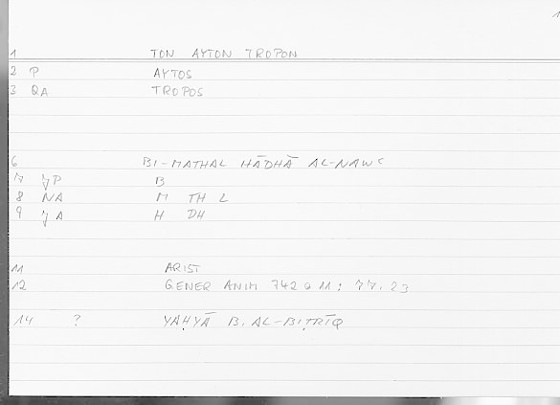 1
1 TON AYTON TROPON
2 P AYTOS
3 QA TROPOS
6 BI-MATHAL HĀDHĀ AL-NAWʿ
7 P B
8 NA M TH L
9 A H DH
11 ARIST
12 GENER ANIM 742 a 11 : 77.23
14 ? YAḤYĀ B. AL-BIṬRĪQ